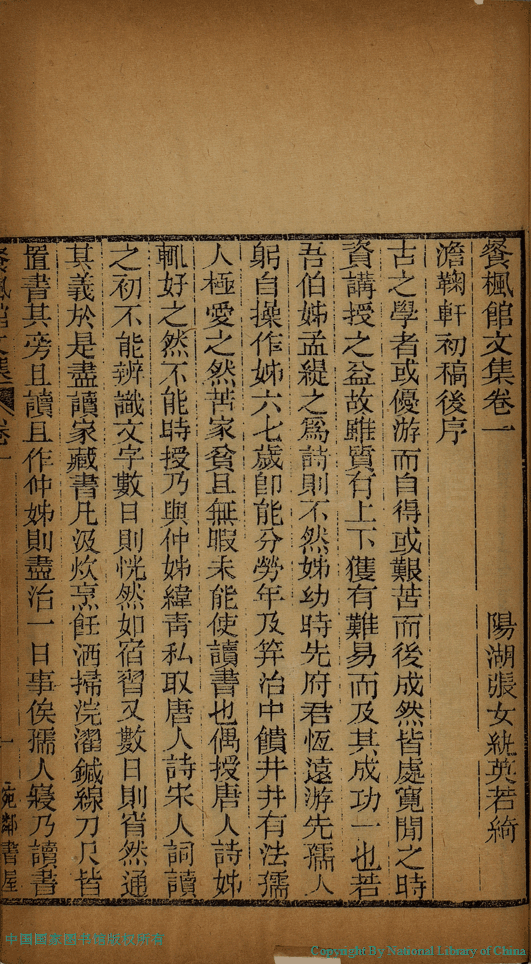 餐楓館文集卷一
陽湖張女紈英若綺
澹鞠軒初稿後序
古之學者或優游而自得或艱苦而後成然皆處寬閒之時
資講授之益故雖質有上下獲有難易而及其成功一也若
吾伯姊孟緹之爲詩則不然姊幼時先府君恆遠游先孺人
躬自操作姊六七歲卽能分勞年及笄治中饋井井有法孺
人極愛之然苦家貧且無暇未能使讀書也偶授唐人詩姊
輒好之然不能時授乃與仲姊緯靑私取唐人詩宋人詞讀
之初不能辨識文字數日則恍然如宿習又數日則㫺然通
其義於是盡讀家藏書凡汲炊烹飪洒掃浣濯鍼線刀尺皆
置書其旁且讀且作仲姊則盡治一日事俟孺人寢乃讀書
餐楓館文集 卷一
一
宛鄰書屋
中国国家图书馆版权所有
Copyright By National Library of China